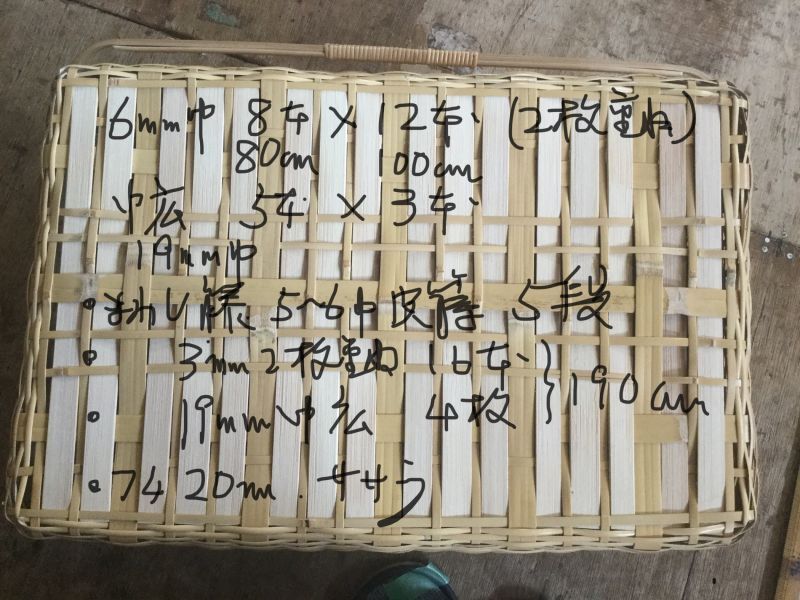 6mm巾 8本×12本(2枚重ね)
80cm 100cm
巾広 5本×3本
19mm巾
・ 5~6巾皮籐 5段
・ 3mm 2枚重ね 16本 } 190cm
・ 19mm巾広 4枚
・フチ 20mm.ササラ